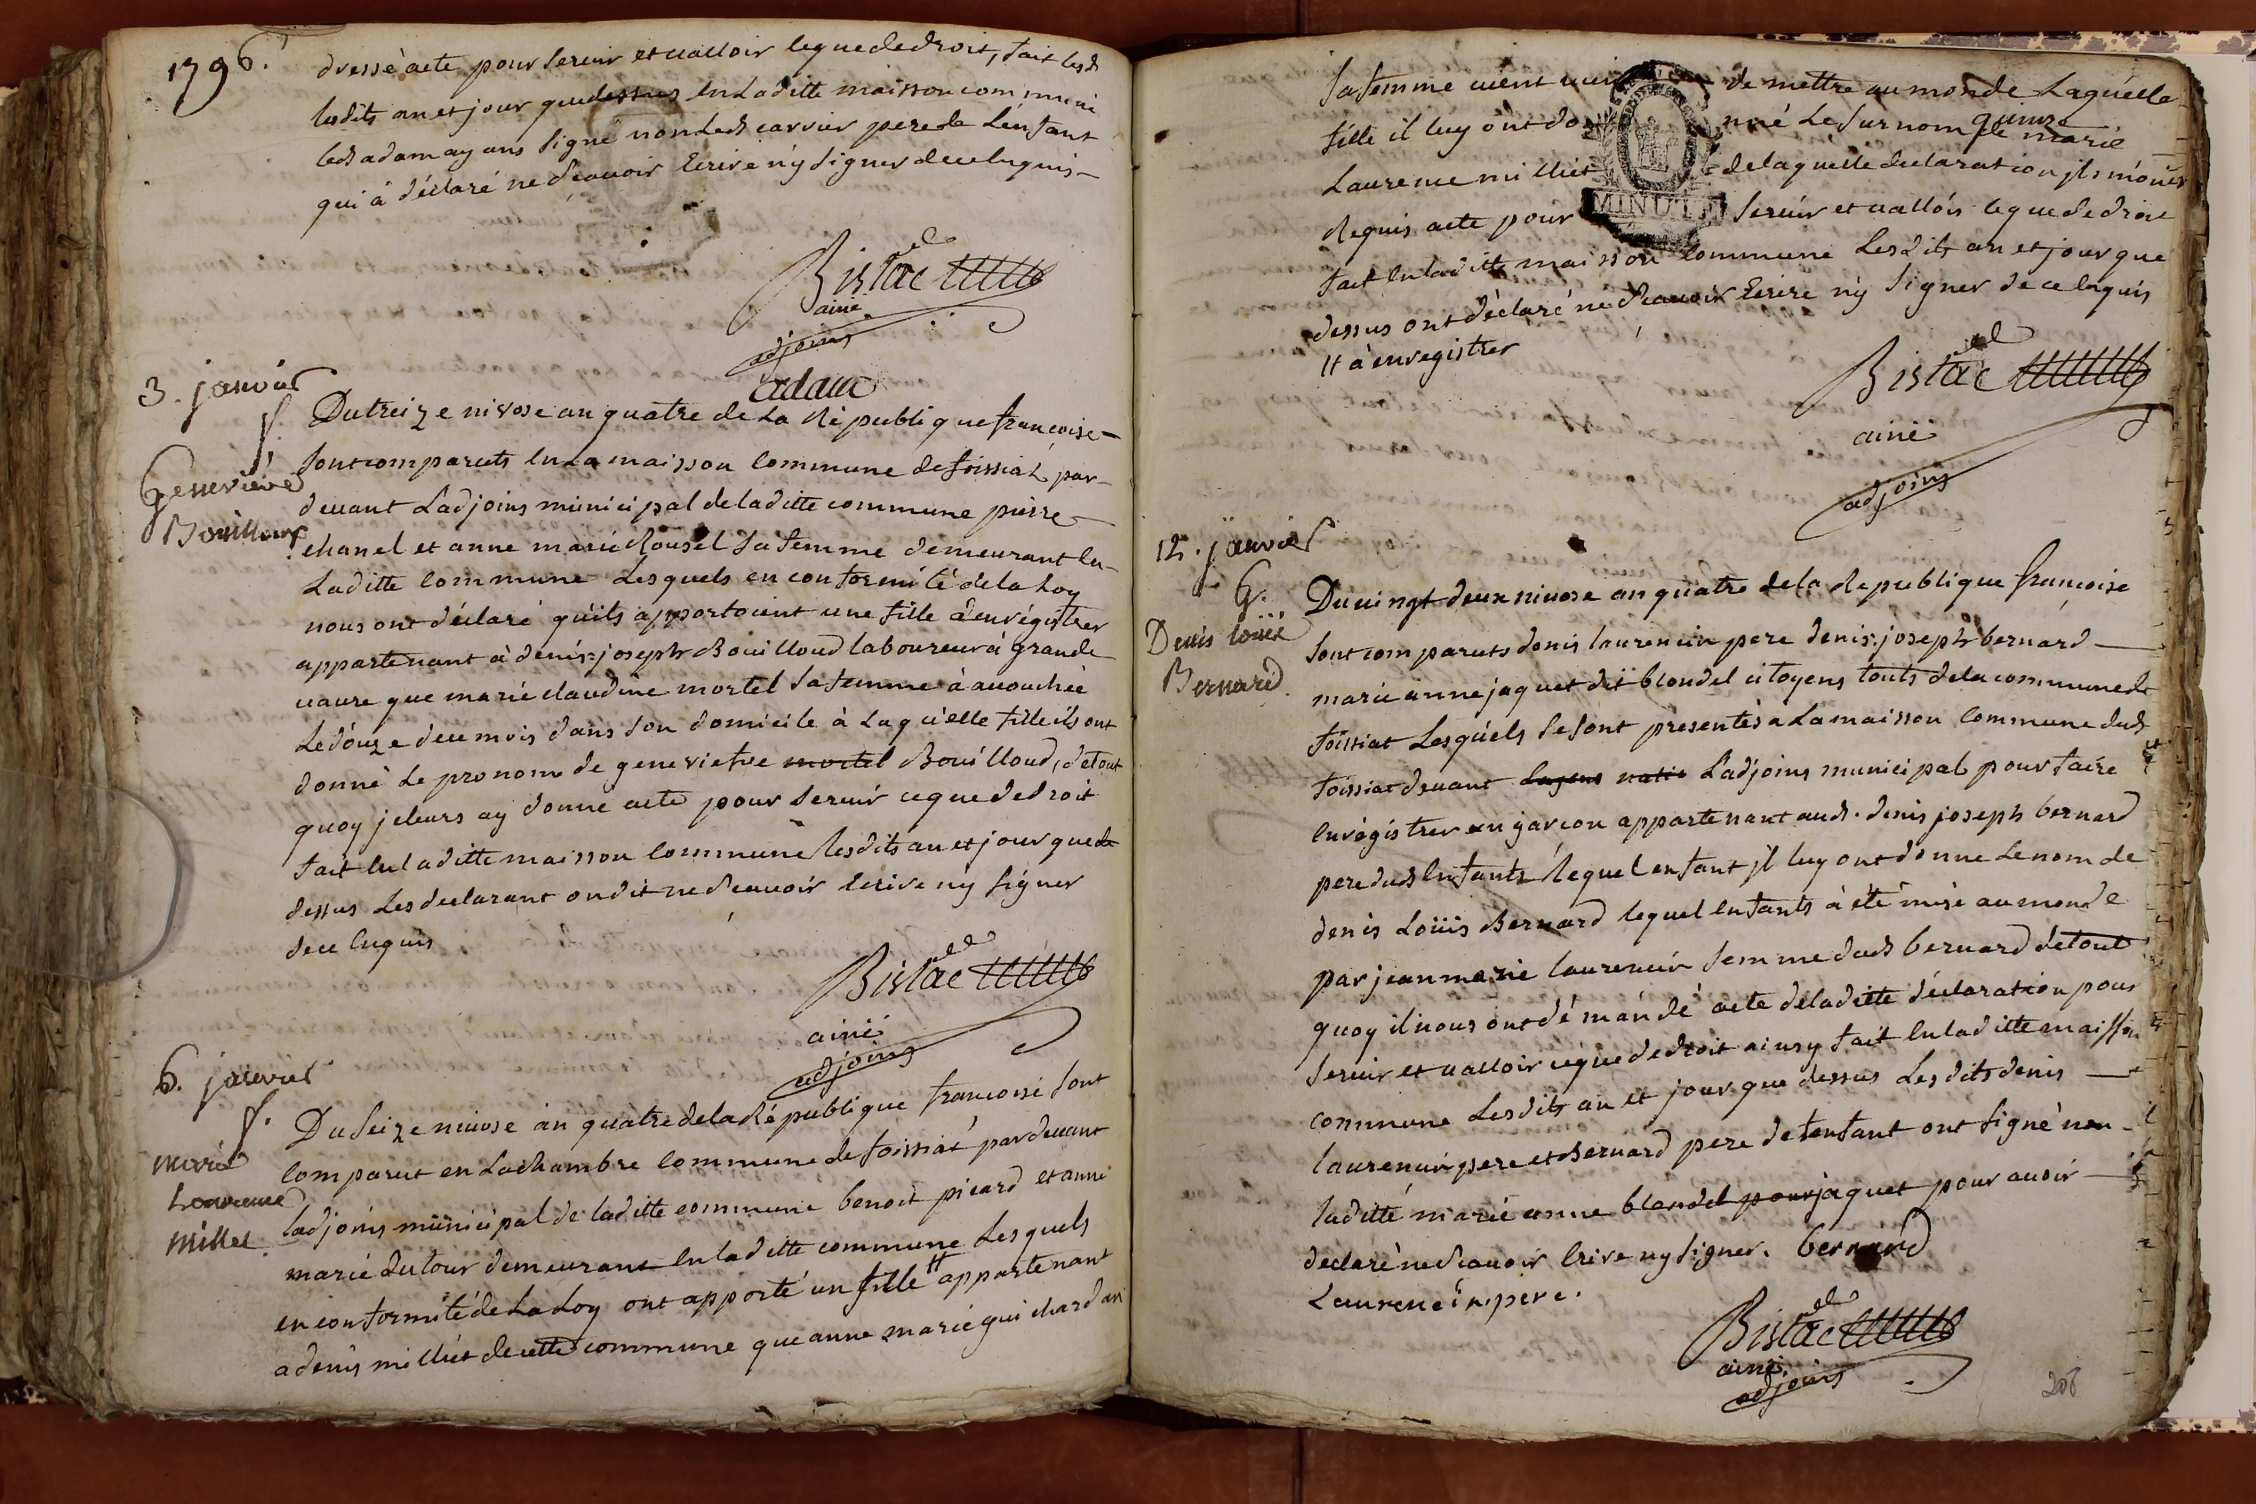 1796.
dressé acte pour servir et valloir ceque dedroit, fait lesd
lesdits an et jour que dessus en Laditte maisson commune
led adam ayans signé non Led carrier pere de L'enfant
qui à déclaré ne scavoir Ecrire n'y signer dece enquis
Bistac
ainé
adjoins
adam
3. janvier
f.
Genevieve
Bouilloud
Dutreize nivose an quatre de La République francoise
sont comparuts en La maisson commune de foissiat par
devant Ladjoins municipal deladitte commune pierre
chanel et anne marie Rousel sa femme demeurant en
Laditte commune Lesquels en conformité dela Loy
nous ont déclaré qu'ils apportoient une fille à enrégistrer
appartenant à denis joseph Bouilloud laboureur à grande
vavre que marie claudine mortel sa femme à accouchée
Le douze dece mois dans son domicile à Laquelle fille ils ont
donné Le pronom de genevietve mortel Bouilloud, detout
quoy jeleurs ay donné acte pour servir ceque dedroit
fait en laditte maisson commune lesdits an et jour que de
dessus Les declarant on dit ne scavoir Ecrire n'y signer
dece enquis
Bistac
ainé
adjoins
6. janvier
f.
marie
Laurence
Millet
Du seize nivose an quatre dela République francoise sont
comparut en Lachambre commune de foissiat pardevant
Ladjoins municipal de laditte commune benoit picard et anne
marie dutour demeurant en laditte commune Lesquels
en conformité de La Loy ont apporté un fille # appartenant
a denis milliet de cette commune que anne marie guichardan
sa femme vient de mettre au monde Laquelle
fille il luy ont donné Le surnom de marie
Laurence milliet delaquelle declaration ils m'ont
Requis acte pour servir et valloir ceque dedroit
MINUTE
fait en laditte maisson commune Lesdits an et jour que
dessus ont déclaré ne scavoir Ecrire n'y signer de ce enquis
# à enregistrer
Bistac
ainé
adjoins
12. janvier
G.
Denis Louis
Bernard
Du vingt deux nivose an quatre dela Republique francoise
sont comparuts denis laurencin pere denis joseph bernard
marie anne jaquet dit blondel citoyens touts dela commune de
foissiat Lesquels se sont presentés a La maisson commune dud
foissiat devant Lagent natio L'adjoins municipal pour faire
enrégistrer un garcon appartenant aud. denis joseph bernard
pere dud enfants lequel enfant il luy ont donné Le nom de
denis Loüis Bernard lequel enfants à été mise au monde
par jeanmarie laurencin femme dud bernard detout
quoy il nous ont démandé acte deladitte déclaration pour
servir et valloir ceque dedroit ainsy fait en laditte maisson
commune Lesdits an et jour que dessus Lesdits denis
laurencin pere et Bernard pere de lenfant ont signé non
laditte marie anne blondel pour jaquet pour avoir
declaré ne scavoir Ecrire ny signer. bernard
Laurencin pere.
Bistac
ainé
adjoins
208